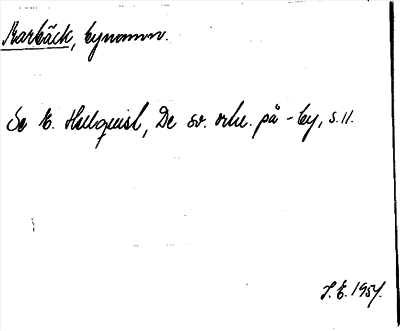 Barbäck, bynamn.
Se E. Hellquist, De sv. ortn. på -by, s. 11.
J.E. 1954.